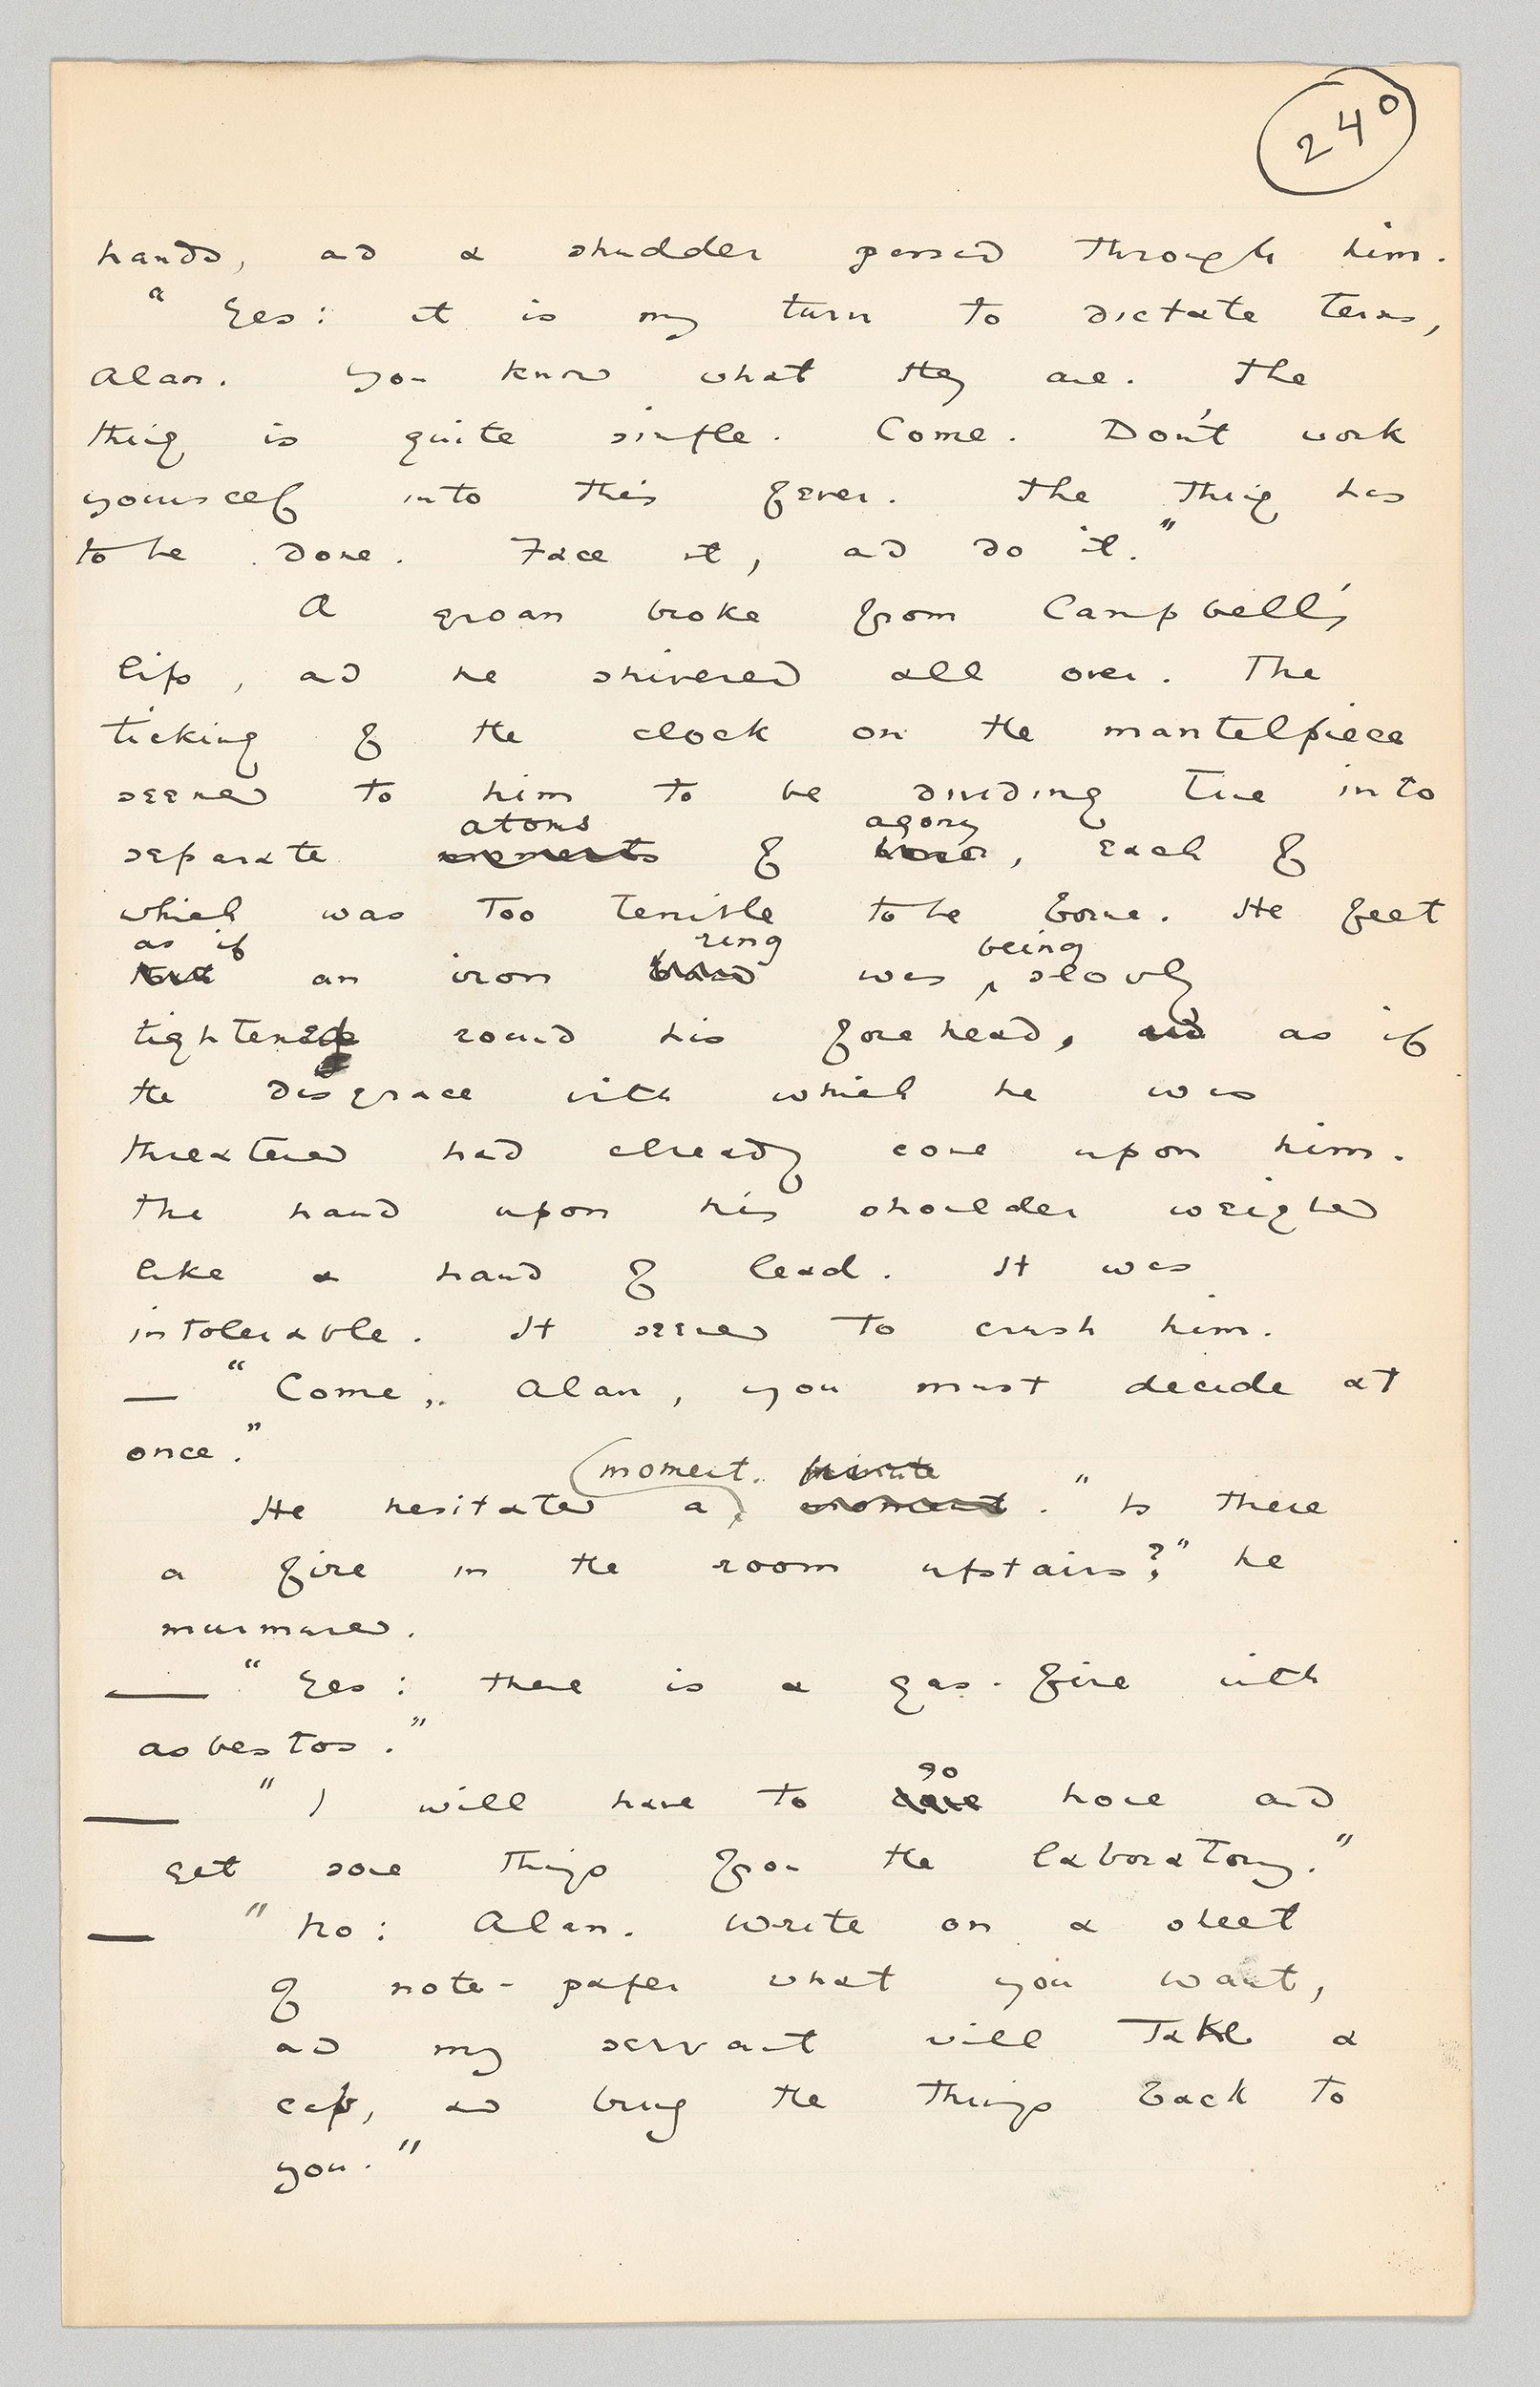 240
hands, and a shudder passed through him.
"Yes: it is my turn to dictate terms,
Alan. You know what they are. The
thing is quite simple. Come. Don't work
yourself into this fever. The thing has
to be done. Face it, and do it."
A groan broke from Campbell's
lips, and he shivered all over. The
ticking of the clock on the mantelpiece
seemed to him to be dividing time into
atoms agony
separate moments of horror, each of
which was too terrible to be borne. He felt
as if ring being
that an iron band was slowly
tightened round his forehead, and as if
the disgrace with which he was
threatened had already come upon him.
The hand upon his shoulder weighed
like a hand of lead. It was
intolerable. It seemed to crush him.
— "Come, Alan, you must decide at
once."
moment. minute
He hesitated a moment. "Is there
a fire in the room upstairs?" he
murmured.
— "Yes: there is a gas-fire with
asbestos."
go
— "I will have to home and
get some things from the laboratory."
— "No: Alan. Write on a sheet
of note-paper what you want,
and my servant will take a
cab, and bring the things back to
you."